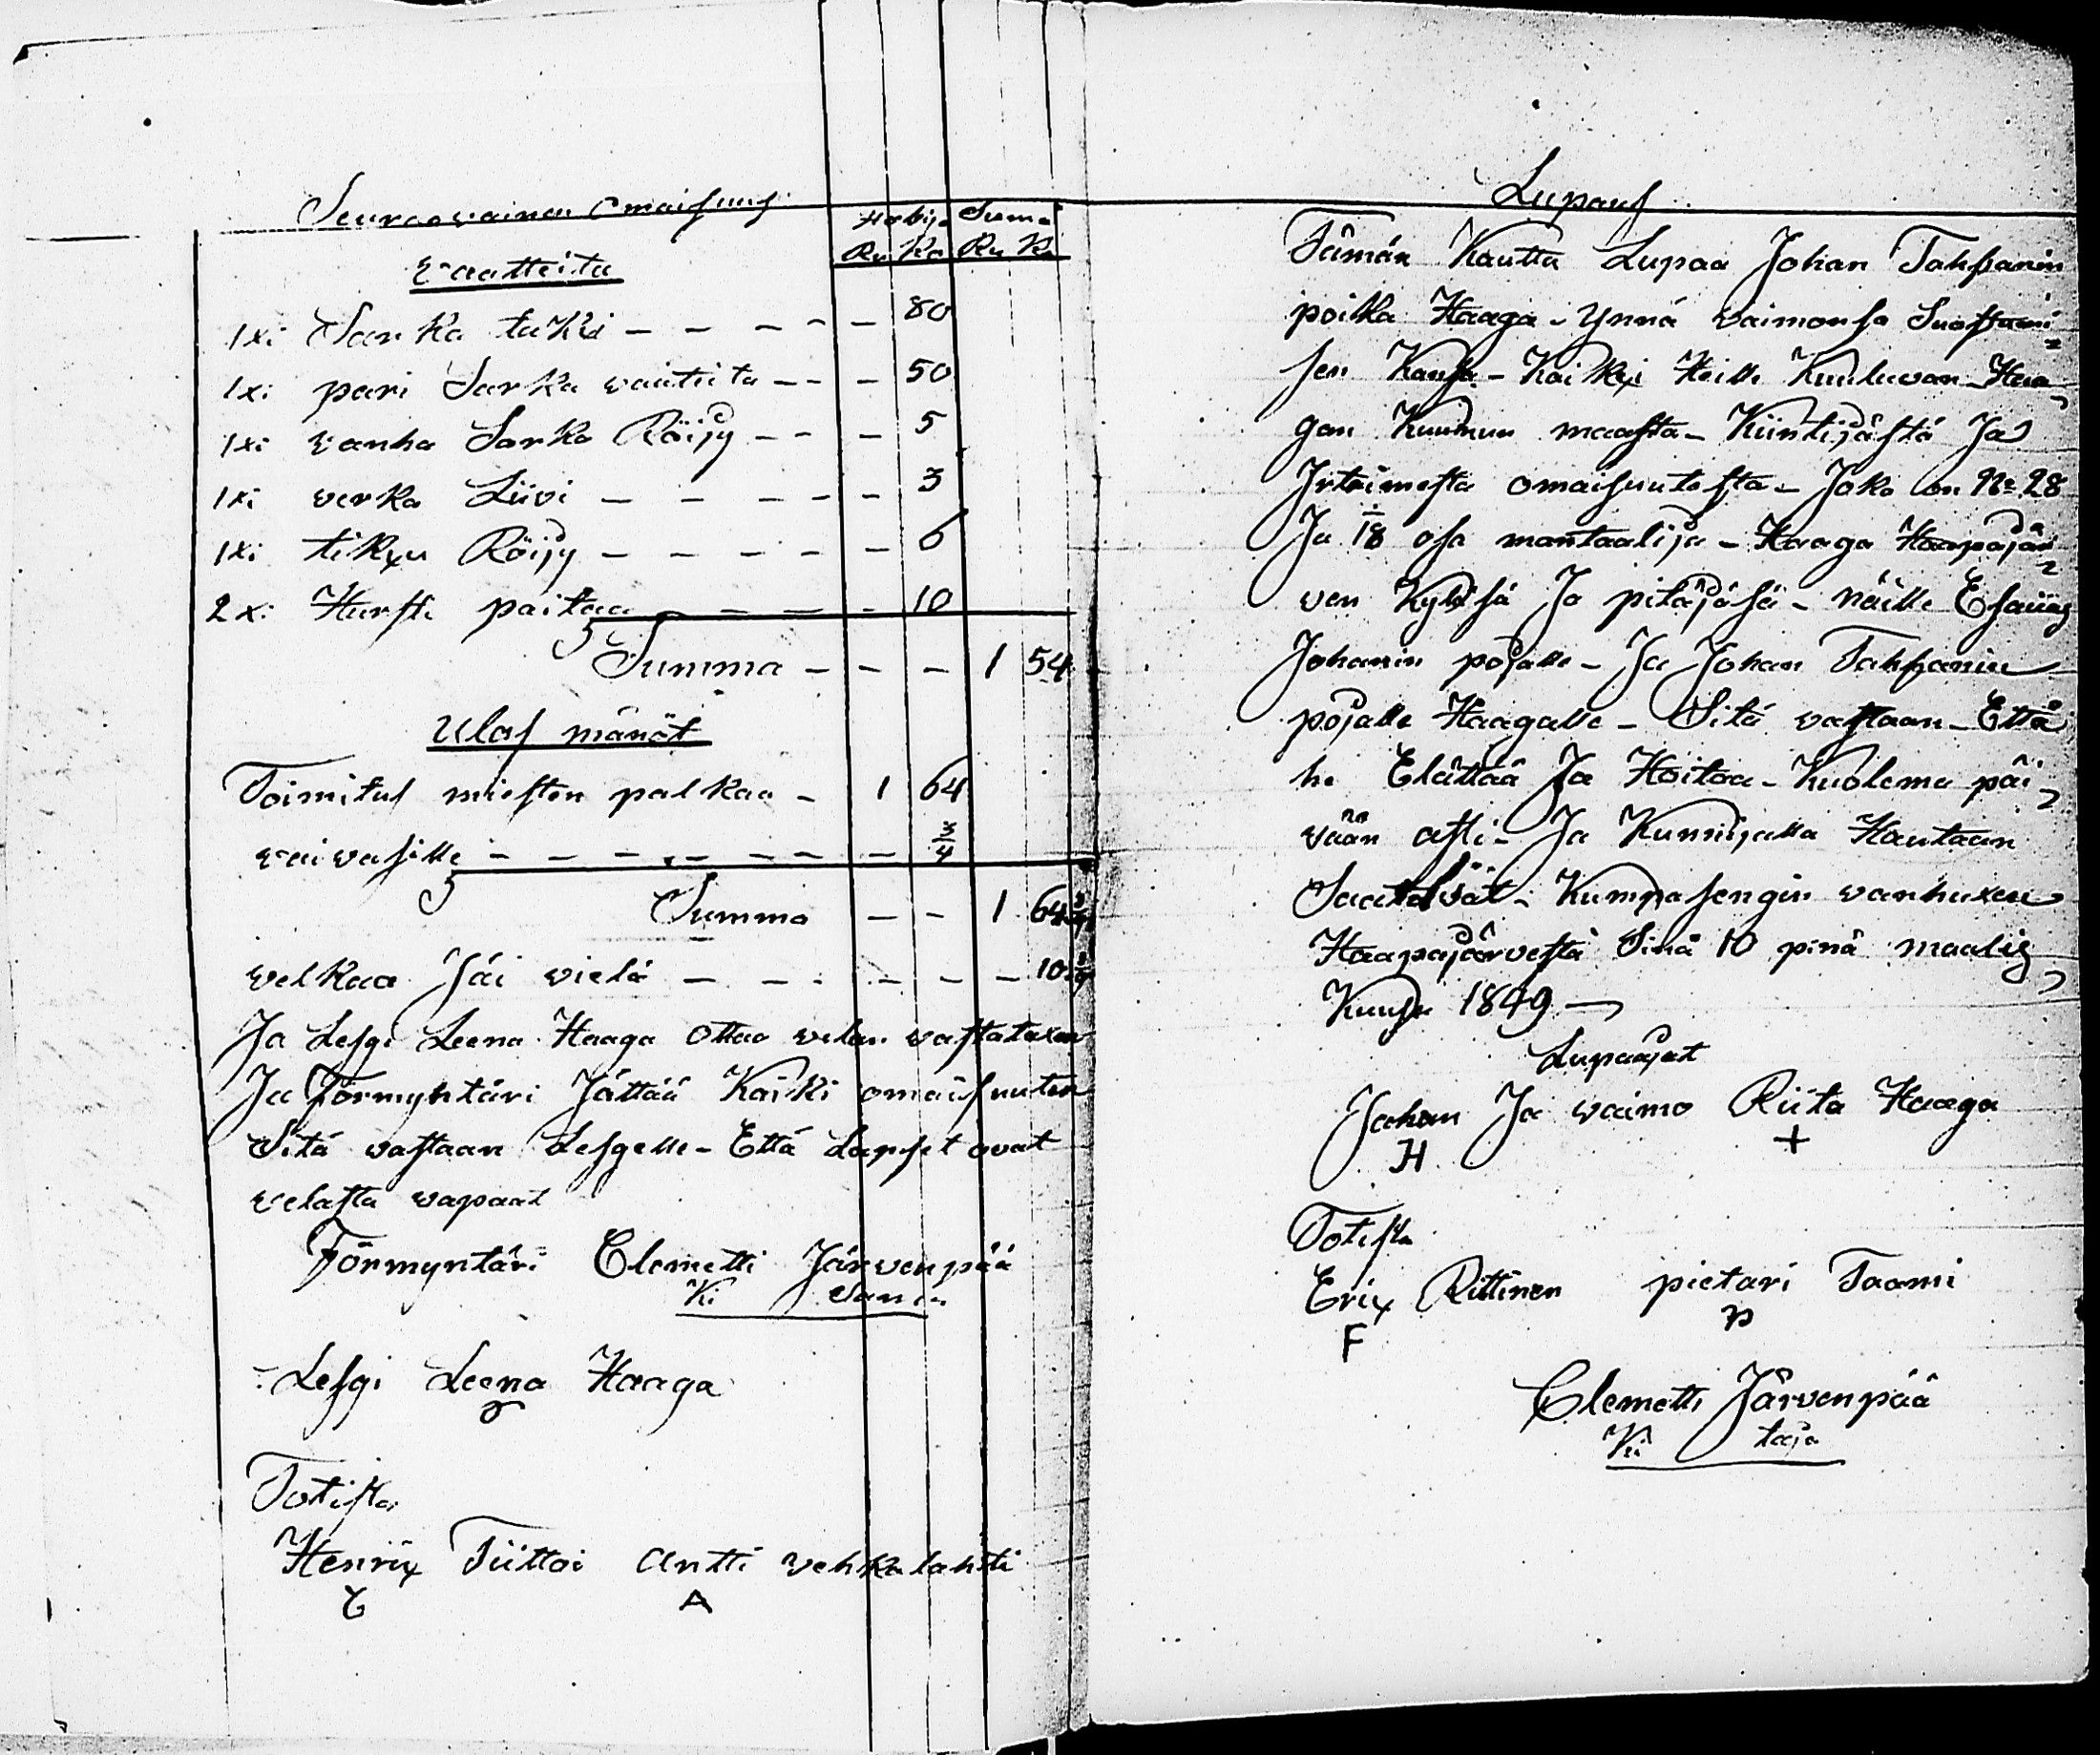 Seuraavainen Omaisuus
Hobija Suma
Ru Ko Ru Ko
Vaatteita
1xi Sarka takki - - - - - 80
1xi pari Sarka vaateita - - - 50
1xi vanha Sarka Röijy - - - 5
1xi verka Liivi - - - - - 3
1xi tikxu Röijy - - - - - 6
2xi Hursti paitaa - - - - 10
Summa - - - 1 54
Ulos mänöt
Toimitus miesten palkaa - 1 64
vaivasille - - - - - - - 3/4
Summa - - 1 64 3/4
velkaa Jäi vielä - - - - - - 10 3/4
Ja Lesgi Leena Haaga Ottaa velan vastataxen
Ja Förmyntäri Jättää Kaiki omaisuuten
Sitä vastaan Lesgelle - Että Lapset ovat
velasta vapaat
Förmyntäri Clemetti Järvenpää
Ki Sama
Lesgi Leena Haaga
Totista
Henrix Tiittoi Antti Vehkalahti
A
Lupaus
Tämän Kautta Lupaa Johan Tahfanin
poika Haaga - Ynnä vaimonsa Suostumi
sen Kansa - Kaikxi Heille Kuuluvan Haa
gan Kuumun maasta - Kiintijästä Ja
Irtaimesta omaisuutesta - Joka on No 28
Ja 1/18 osa mantaalija - Haaga Haapajär
ven Kyläsä Ja pitäjäsä - näille Esaijas
Johanin pojalle - Ja Johan Tahfanin
pojalle Haagalle - Sitä vastaan - Että
he Elättää Ja Hoitaa - Kuolema päi
vään asti - Ja Kunnijalla Hautaan
Saatavat - Kumpasengin vanhuxen
Haapajärvestä Sinä 10 pnä maalis
Kuusa 1849
Lupaajat
Johan Ja vaimo Riita Haaga
H +
Totista
Erix Rittinen pietari Taami
F P
Clemetti Järvenpää
Ki taja